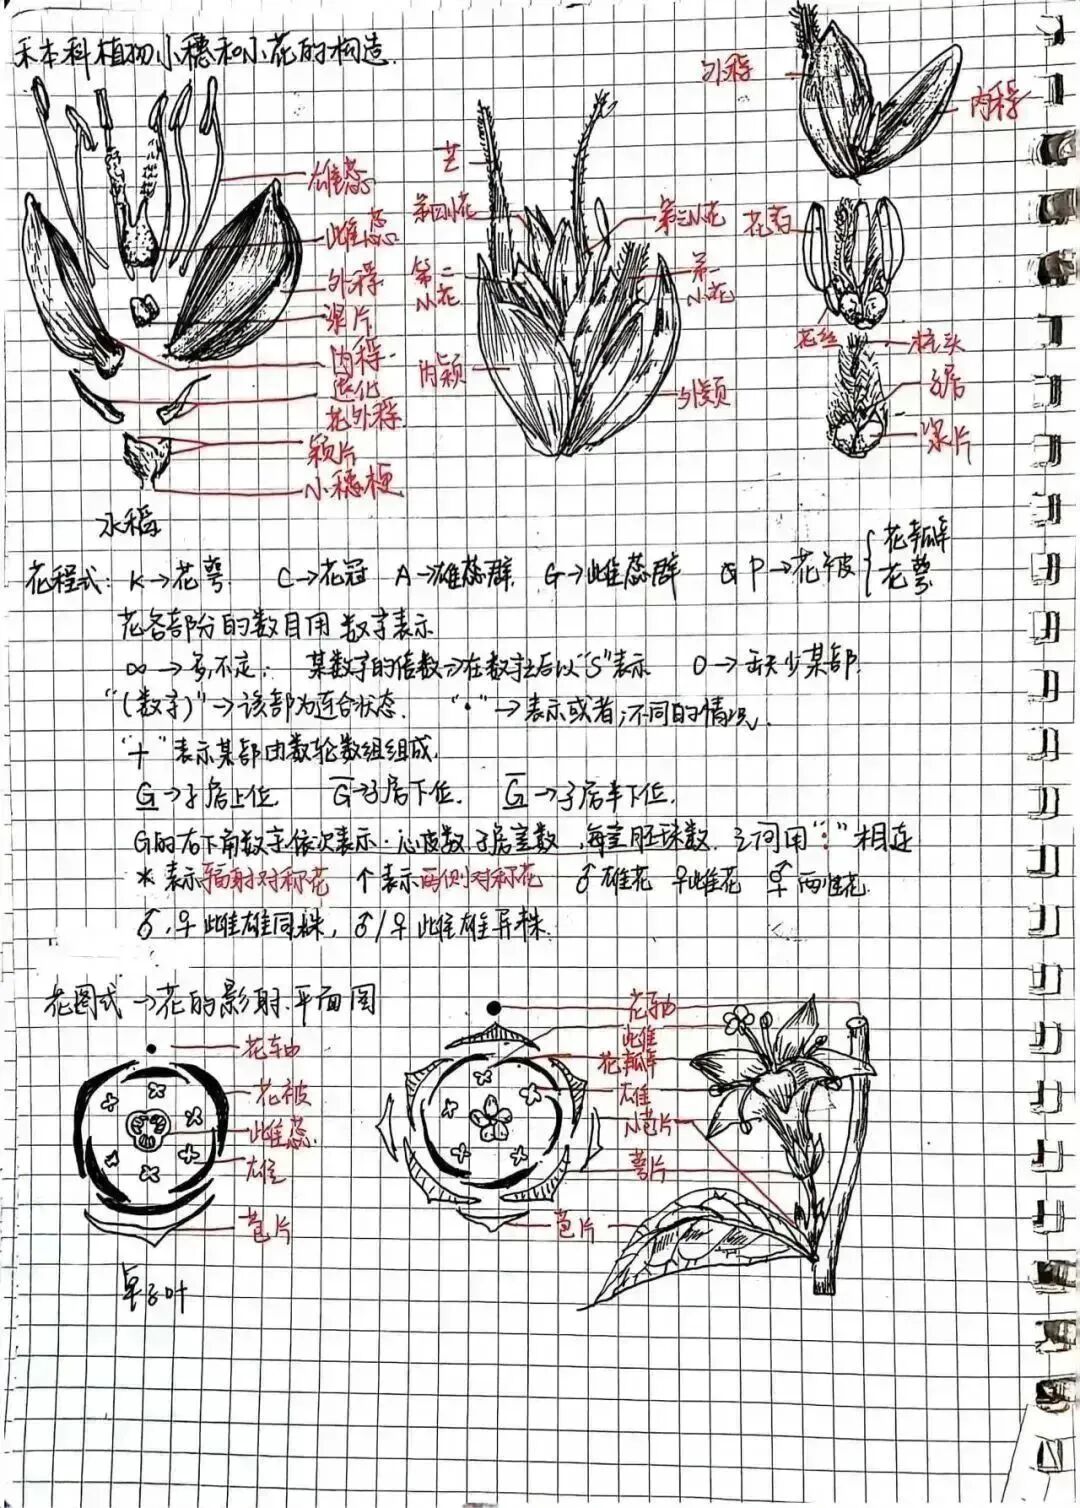 禾本科植物小穗和小花的构造.
雄蕊
雌蕊
外稃
浆片
内稃
退化
花外稃
颖片
小穗梗
水稻
芒
第四小花
第三小花
第二
小花
第一
小花
内颖
外颖
外稃
内稃
花药
花丝
柱头
子房
浆片
花程式: K→花萼. C→花冠 A→雄蕊群. G→雌蕊群 P→花被{花瓣 花萼
花各部分的数目用数字表示
∞→多,不定; 某数字的倍数→在数字后以"S"表示 0→缺少某部.
"(数字)"→该部为连合状态. "·"→表示或者;不同的情况.
"+"表示某部由数轮数组组成.
G̲→子房上位 G̅→子房下位. G̲̅→子房半下位.
G的右下角数字依次表示·心皮数.子房室数,每室胚珠数.之间用":"相连
*表示辐射对称花 ↑表示两侧对称花 ♂雄花 ♀雌花 ⚥两性花
♂.♀雌雄同株, ♂/♀雌雄异株.
花图式→花的影射.平面图
花轴
花被
雌蕊
雄
苞片
单子叶
花轴
雌
花瓣
雄
小苞片
萼片
苞片